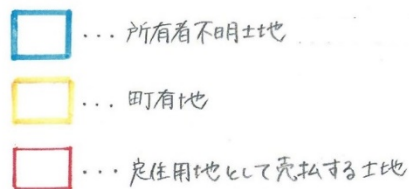 ・・・ 所有者不明土地
・・・ 町有地
・・・ 定住用地として売払する土地